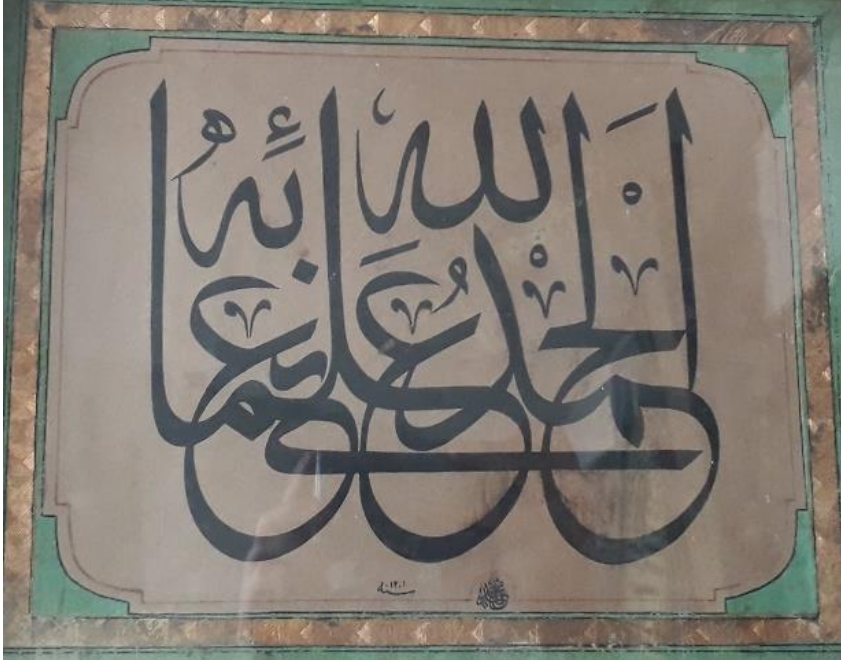 اَلْحَمْدُ لِلّٰهِ عَلٰى نَعْمَائِهُ
سنه